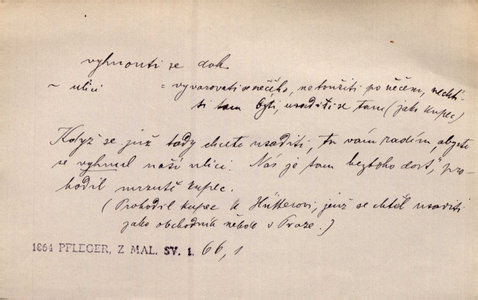 vyhnouti se dok.
~ ulici = vyvarovati se něčeho, netoužiti po něčem, nechtí-
ti tam býti, usaditi se tam (jako kupec)
Když se již tady chcete usaditi, tu vám radím, abyste
se vyhnul naší ulici. Nás je tam beztoho dost, pro-
hodil mrzutě kupec.
(Prohodil kupec k Hüttlerovi, jenž se chtěl usaditi
jako obchodník někde v Praze.)
1864 PFLEGER, Z MAL. SV. 1. 66, 1